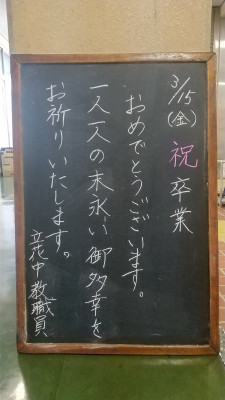 3/15(金) 祝 卒業
おめでとうございます。
一人一人の末永い御多幸を
お祈りいたします。
立花中教職員